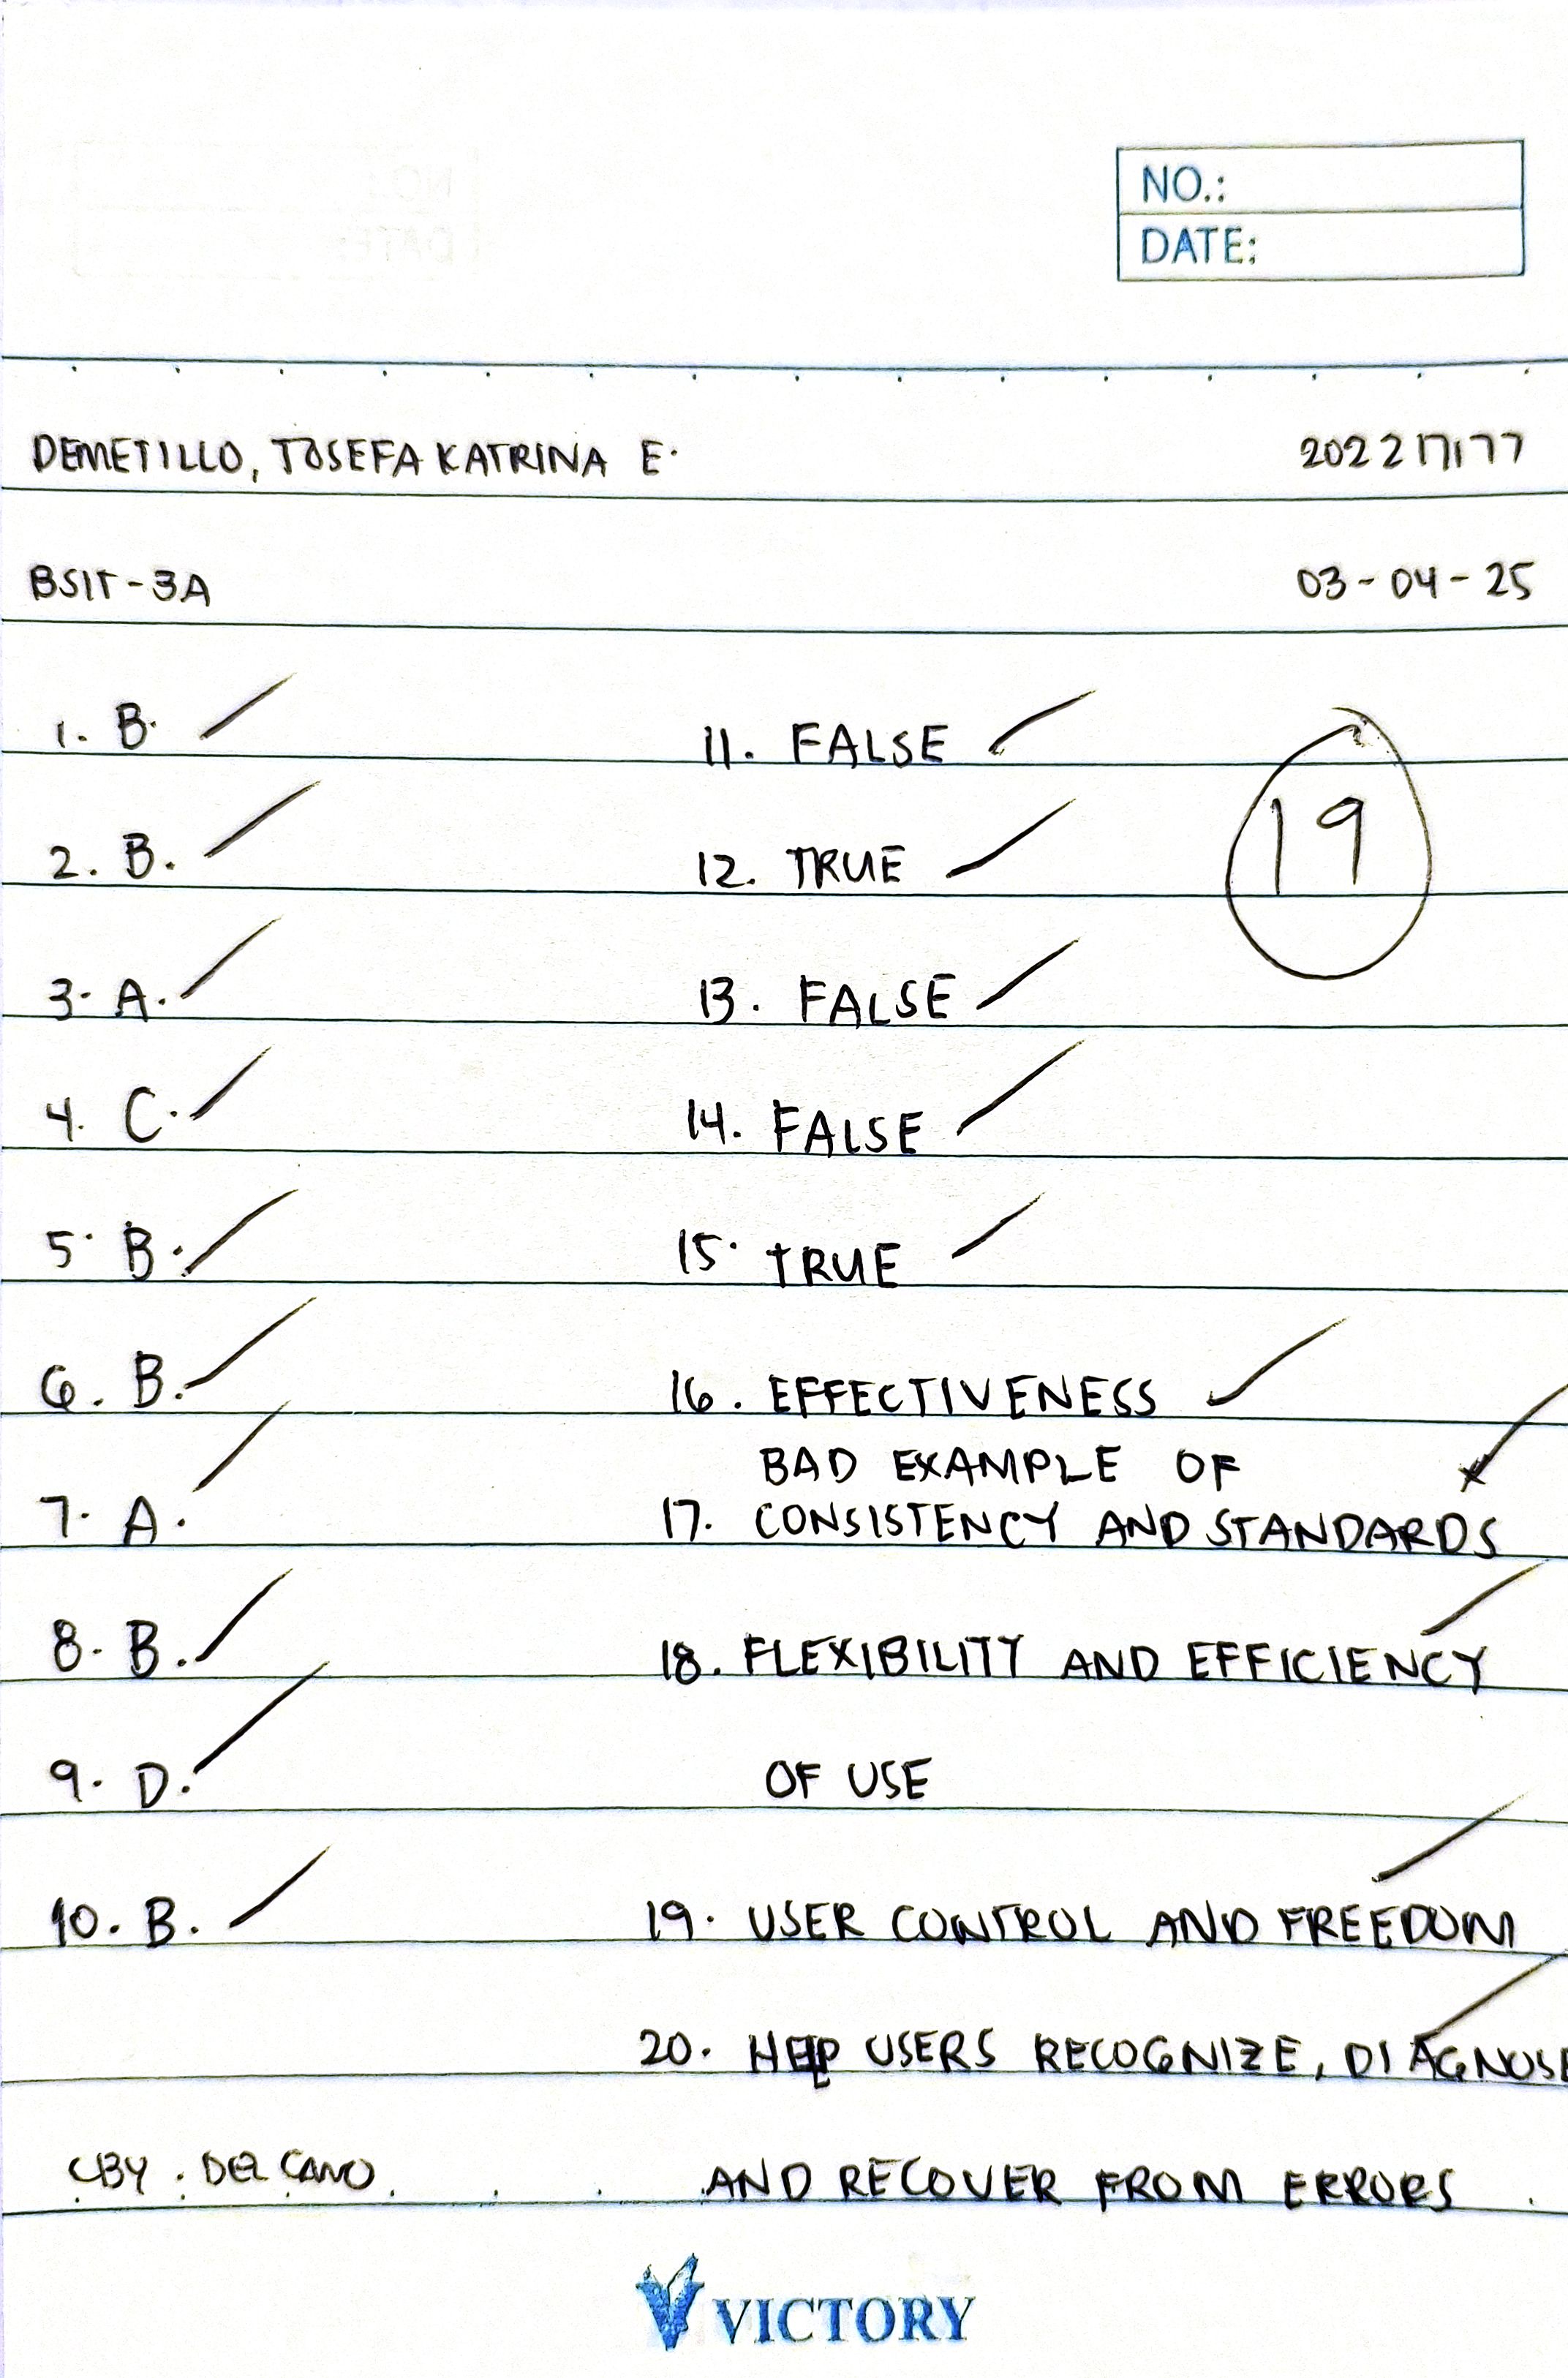 NO.:
DATE:
DEMETILLO, JOSEFA KATRINA E. 202217177
BSIT-3A 03-04-25
1. B.
2. B.
3. A.
4. C.
5. B.
6. B.
7. A.
8. B.
9. D.
10. B.
11. FALSE
12. TRUE
13. FALSE
14. FALSE
15. TRUE
16. EFFECTIVENESS
BAD EXAMPLE OF
17. CONSISTENCY AND STANDARDS
18. FLEXIBILITY AND EFFICIENCY
OF USE
19. USER CONTROL AND FREEDOM
20. HELP USERS RECOGNIZE, DIAGNOSE
AND RECOVER FROM ERRORS
19
CBY. DEL CANO
VICTORY